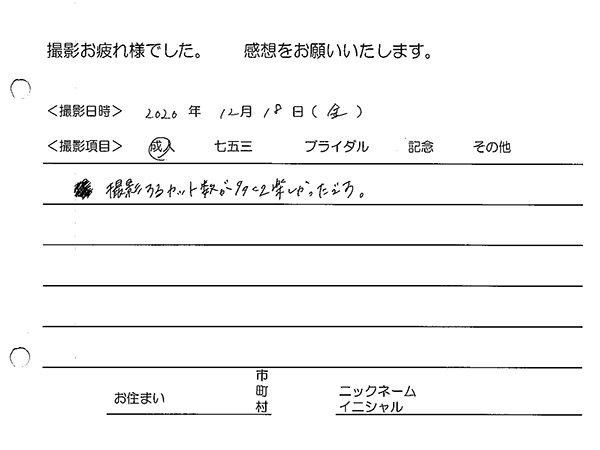 撮影お疲れ様でした。 感想をお願いいたします。
＜撮影日時＞ 2020 年 12月 18 日 ( 金 )
＜撮影項目＞ 成人 七五三 ブライダル 記念 その他
撮影するカット数が多くて楽しかったです。
お住まい 市町村 ニックネーム イニシャル